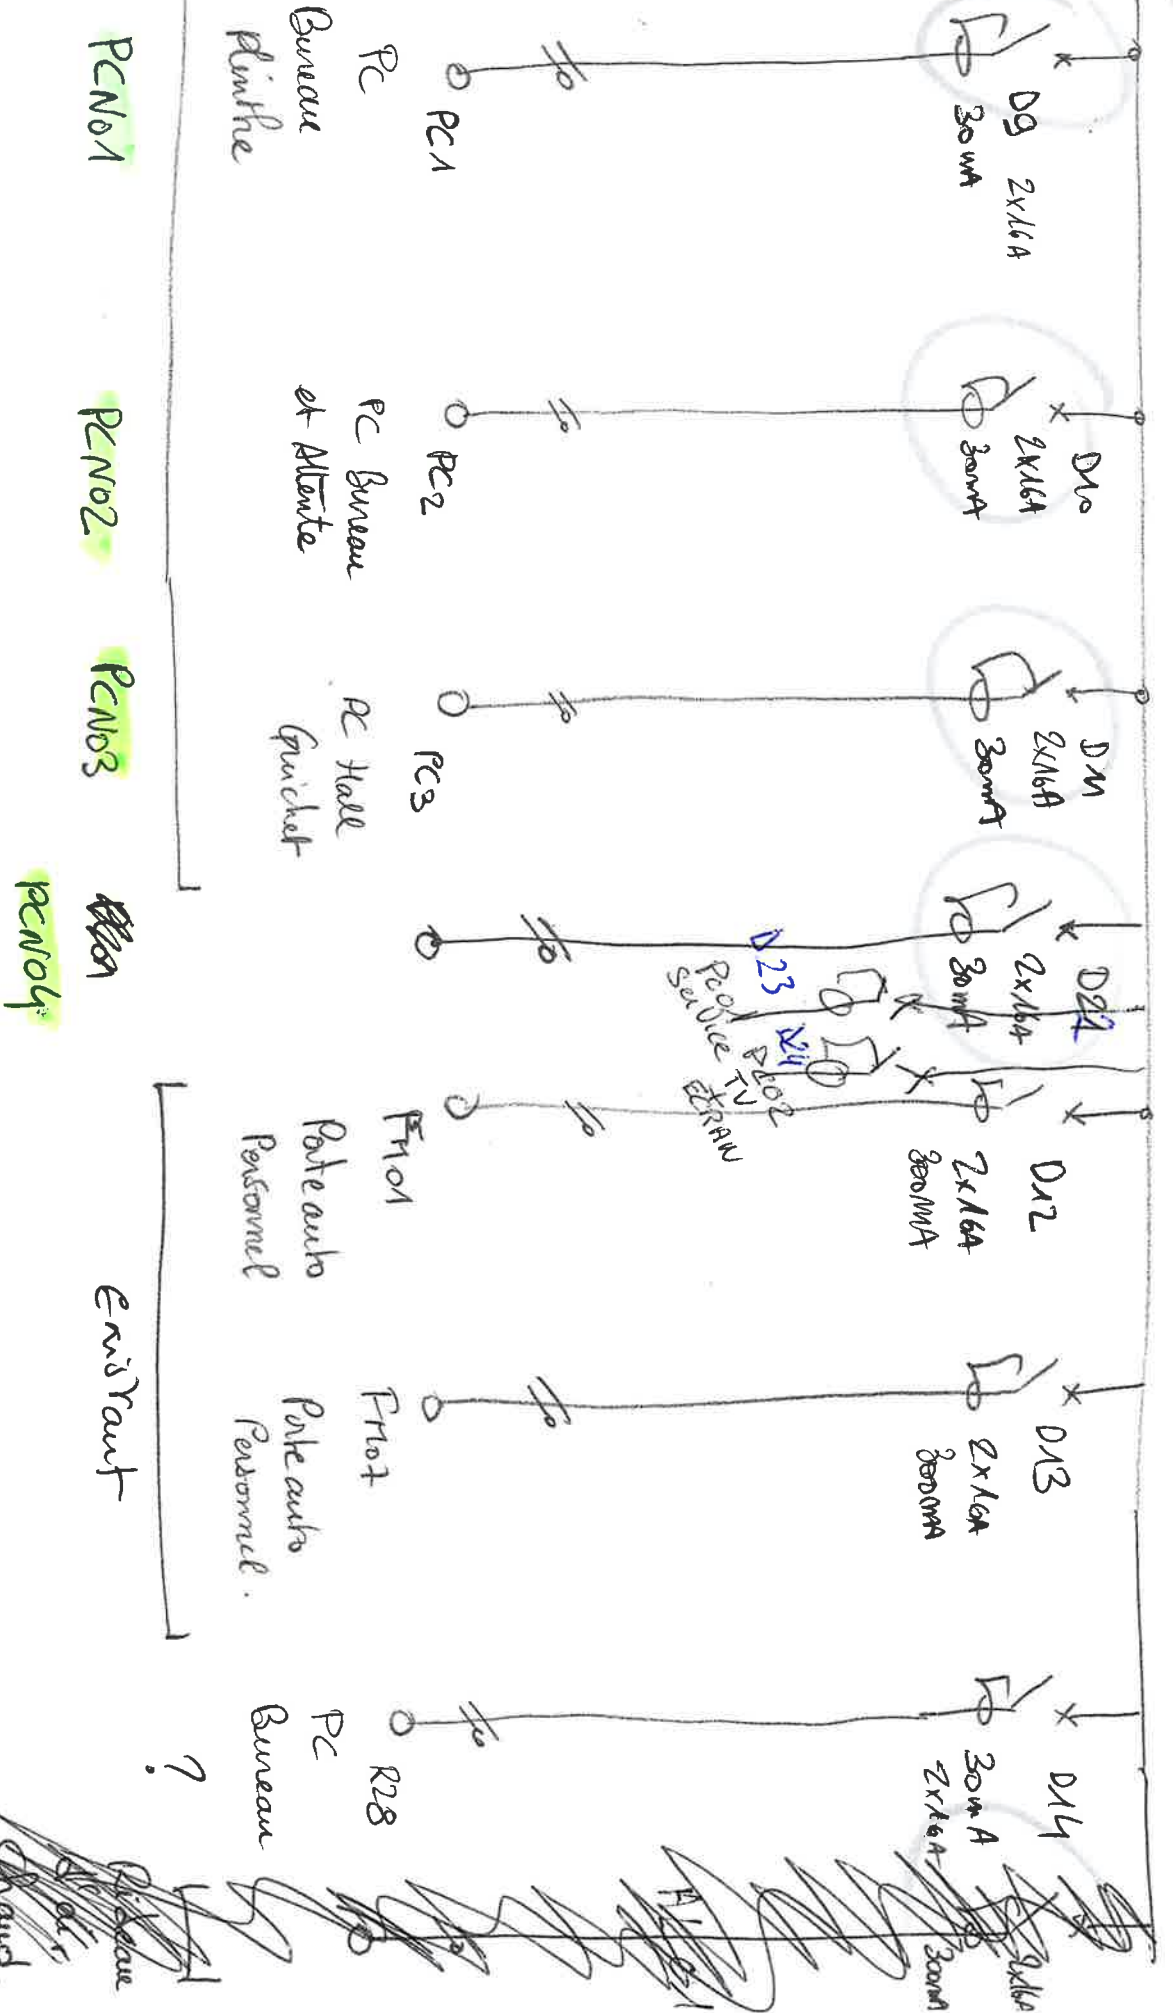 D9 2x16A
30mA
PC1
PC
Bureau
plinthe
PCN01
D10
2x16A
30mA
PC2
PC Bureau
et Attente
PCN02
D11
2x16A
30mA
PC3
PC Hall
Guichet
PCN03
2x16A
30mA
PCN04
D23
PC01
Service
D24
PC02
TV
ECRAN
D12
2x16A
300mA
FM01
Porte auto
Personnel
D13
2x16A
300mA
FM07
Porte auto
Personnel.
Existant
D14
30mA
2x16A
R28
PC
Bureau
?
2x16A
300mA
Rideau
d'air
chaud